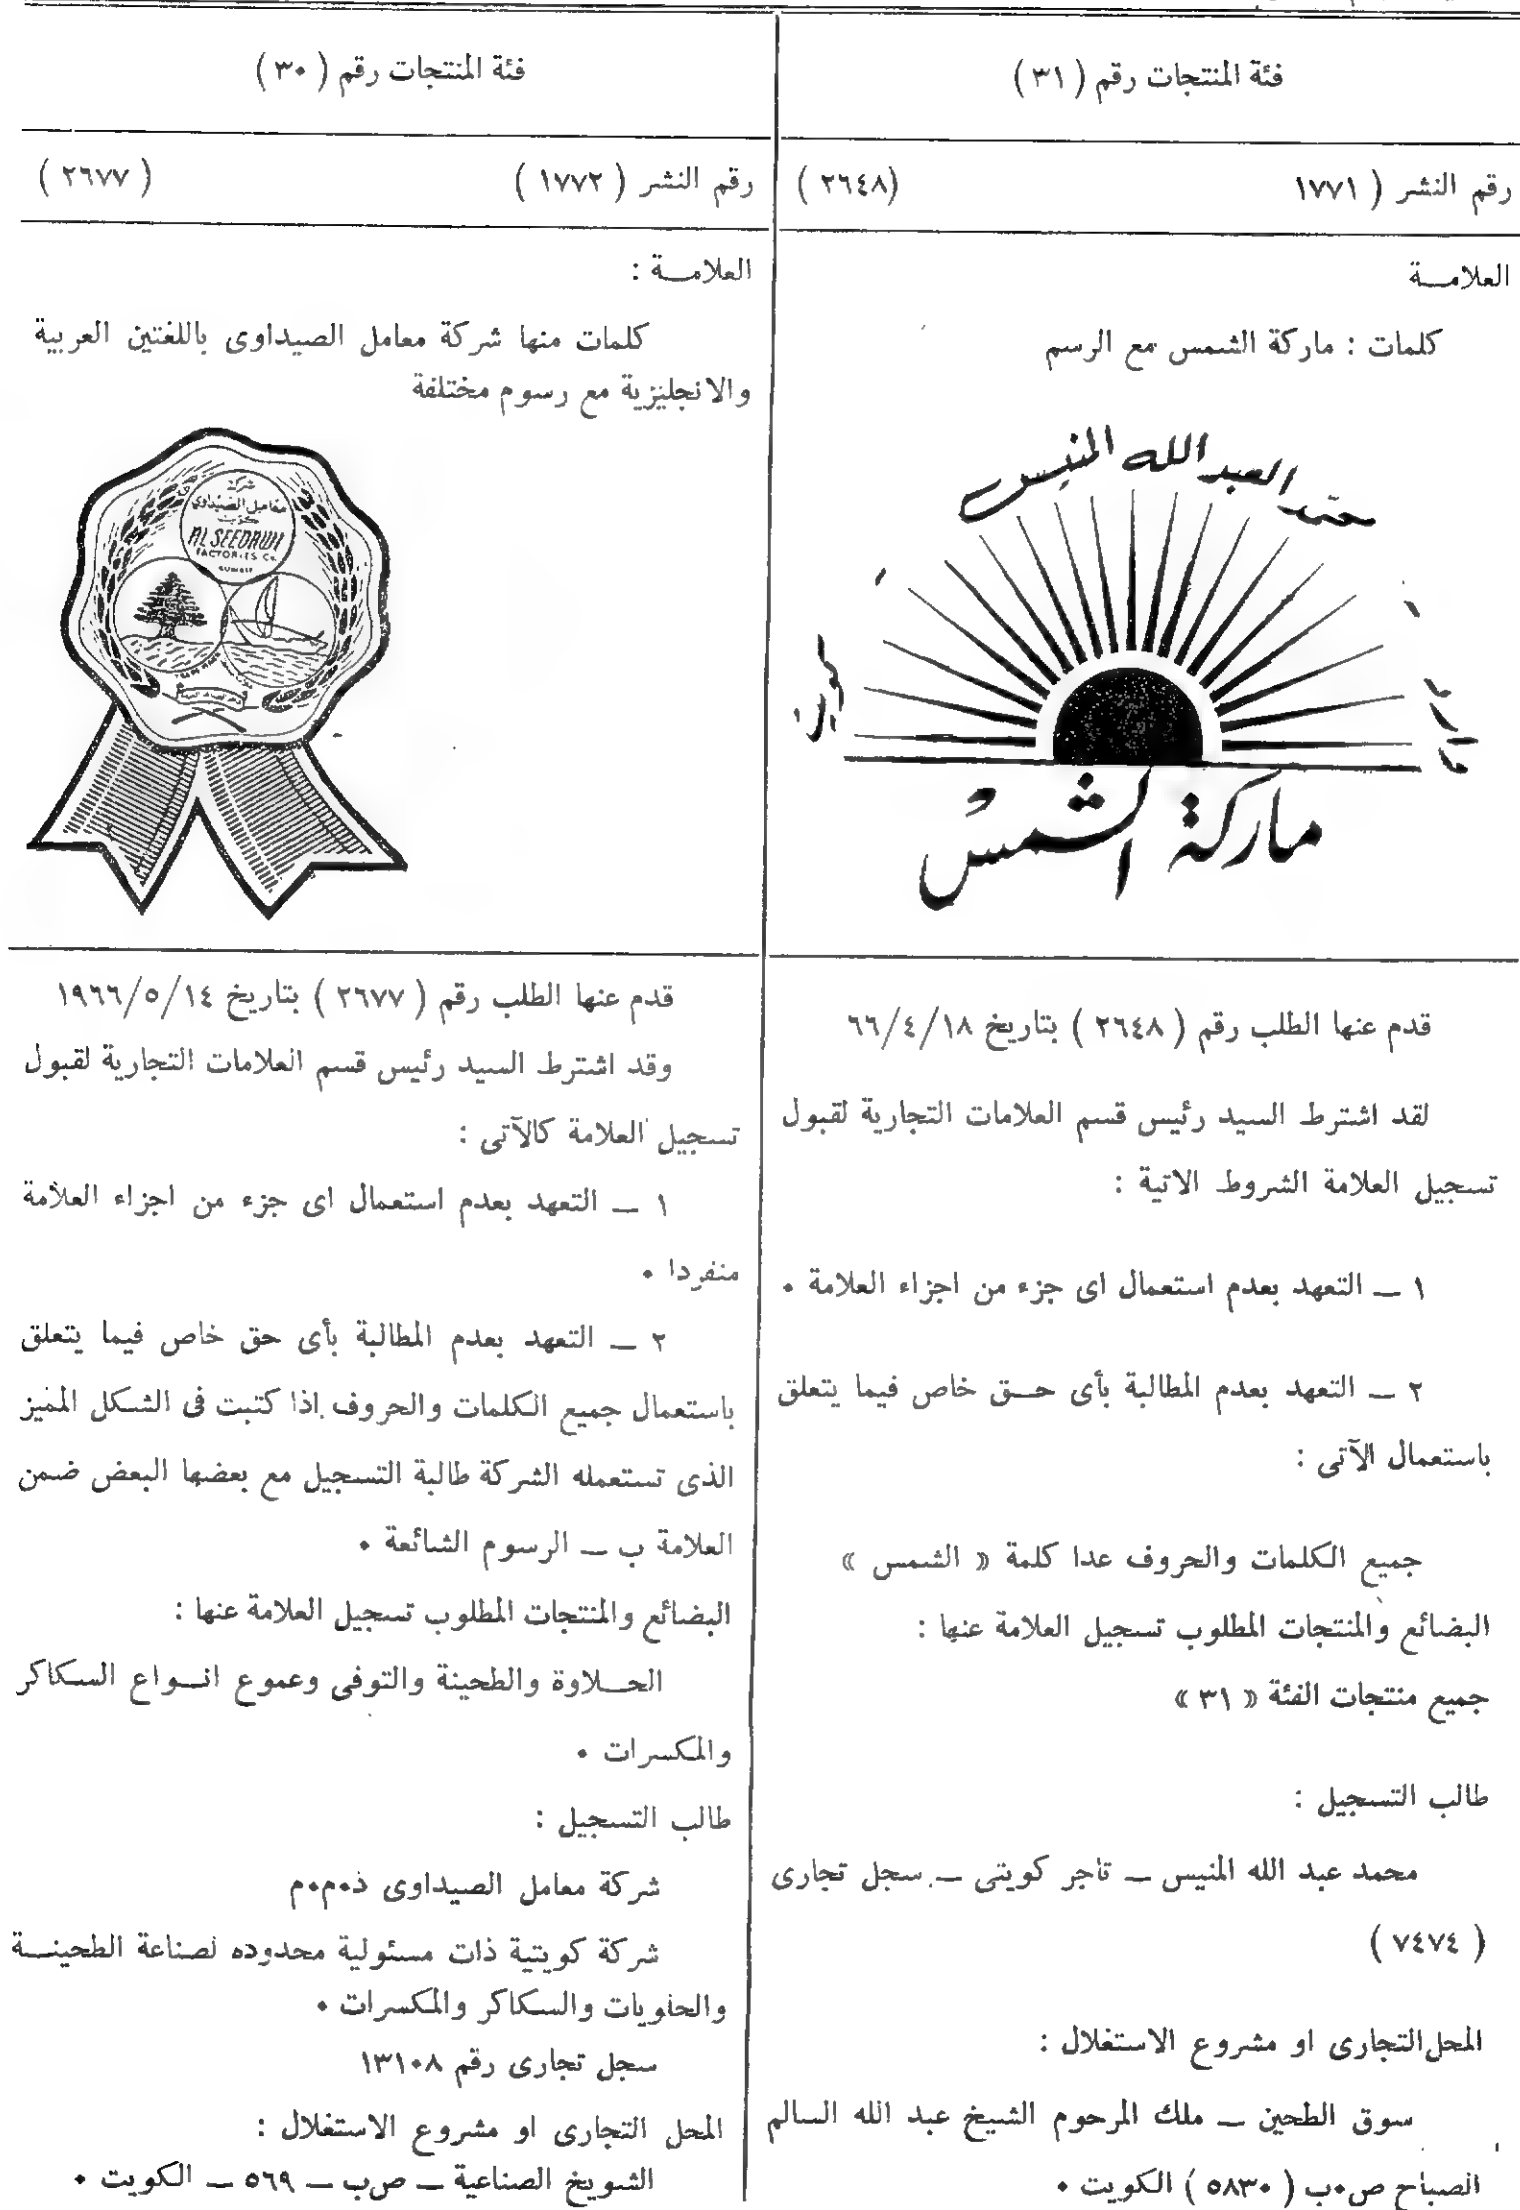 فئة المنتجات رقم ( ٣١ )
رقم النشر ( ١٧٧١ (٢٦٤٨ )
العلامـــة
كلمات : ماركة الشمس مع الرسم
محمد العبد الله المنيس
وارد
كويت
ماركة الشمس
قدم عنها الطلب رقم ( ٢٦٤٨ ) بتاريخ ٦٦/٤/١٨
لقد اشترط السيد رئيس قسم العلامات التجارية لقبول
تسجيل العلامة الشروط الاتية :
١ ــ التعهد بعدم استعمال اى جزء من اجزاء العلامة ٠
٢ ــ التعهد بعدم المطالبة بأى حــق خاص فيما يتعلق
باستعمال الآتى :
جميع الكلمات والحروف عدا كلمة « الشمس »
البضائع والمنتجات المطلوب تسجيل العلامة عنها :
جميع منتجات الفئة « ٣١ »
طالب التسجيل :
محمد عبد الله المنيس ــ تاجر كويتى ــ سجل تجارى
( ٧٤٧٤ )
المحل التجارى او مشروع الاستغلال :
سوق الطحين ــ ملك المرحوم الشيخ عبد الله السالم
الصباح ص٠ب ( ٥٨٣٠ ) الكويت ٠
فئة المنتجات رقم ( ٣٠ )
رقم النشر ( ١٧٧٢ ) ( ٢٦٧٧ )
العلامـــة :
كلمات منها شركة معامل الصيداوى باللغتين العربية
والانجليزية مع رسوم مختلفة
شركة
معامل الصيداوي
كويت
AL SEEDAWI
FACTORIES Co.
KUWAIT
قدم عنها الطلب رقم ( ٢٦٧٧ ) بتاريخ ١٩٦٦/٥/١٤
وقد اشترط السيد رئيس قسم العلامات التجارية لقبول
تسجيل العلامة كالآتى :
١ ــ التعهد بعدم استعمال اى جزء من اجزاء العلامة
منفردا ٠
٢ ــ التعهد بعدم المطالبة بأى حق خاص فيما يتعلق
باستعمال جميع الكلمات والحروف اذا كتبت فى الشكل المميز
الذى تستعمله الشركة طالبة التسجيل مع بعضها البعض ضمن
العلامة ب ــ الرسوم الشائعة ٠
البضائع والمنتجات المطلوب تسجيل العلامة عنها :
الحــلاوة والطحينة والتوفى وعموع انــواع السكاكر
والمكسرات ٠
طالب التسجيل :
شركة معامل الصيداوى ذ٠م٠م
شركة كويتية ذات مسئولية محدوده لصناعة الطحينــة
والحلويات والسكاكر والمكسرات ٠
سجل تجارى رقم ١٣١٠٨
المحل التجارى او مشروع الاستغلال :
الشويخ الصناعية ــ ص٠ب ــ ٥٦٩ ــ الكويت ٠